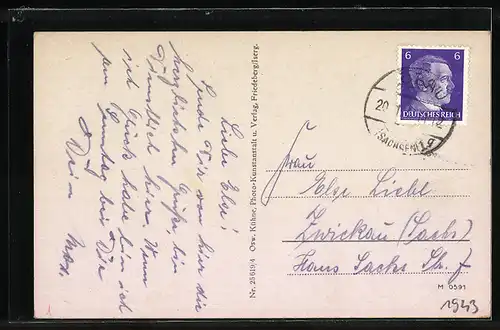 Liebe Else!
Sende Dir von hier die
herzlichsten Grüße bin
hier. Wenn
ich Glück habe bin ich
am Sonntag bei Dir
Dein
Max.
Nr. 25619/4 Osw. Kühne, Photo-Kunstanstalt u. Verlag, Friedeberg/Iserg.
6 6
DEUTSCHES REICH
20
(SACHSEN)
Frau
Else Liebe
Zwickau (Sachs)
Hans Sachs Str. 7
M 0591
1943